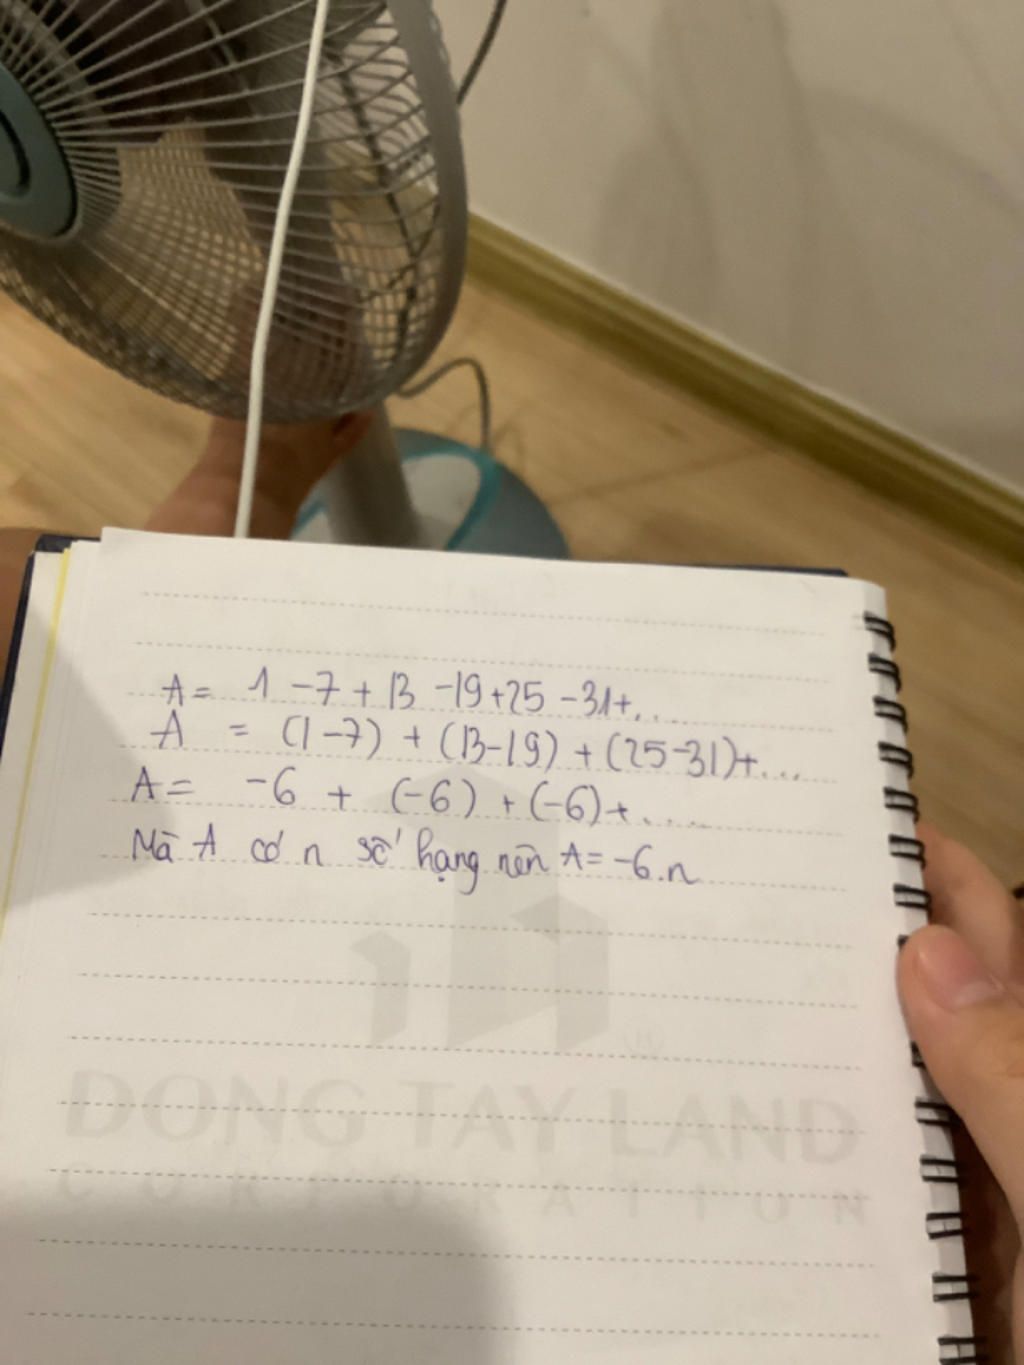 A = 1 - 7 + 13 - 19 + 25 - 31 + .....
A = (1 - 7) + (13 - 19) + (25 - 31) + ....
A = -6 + (-6) + (-6) + .....
Mà A có n số hạng nên A = -6.n
DONG TAY LAND
CORPORATION